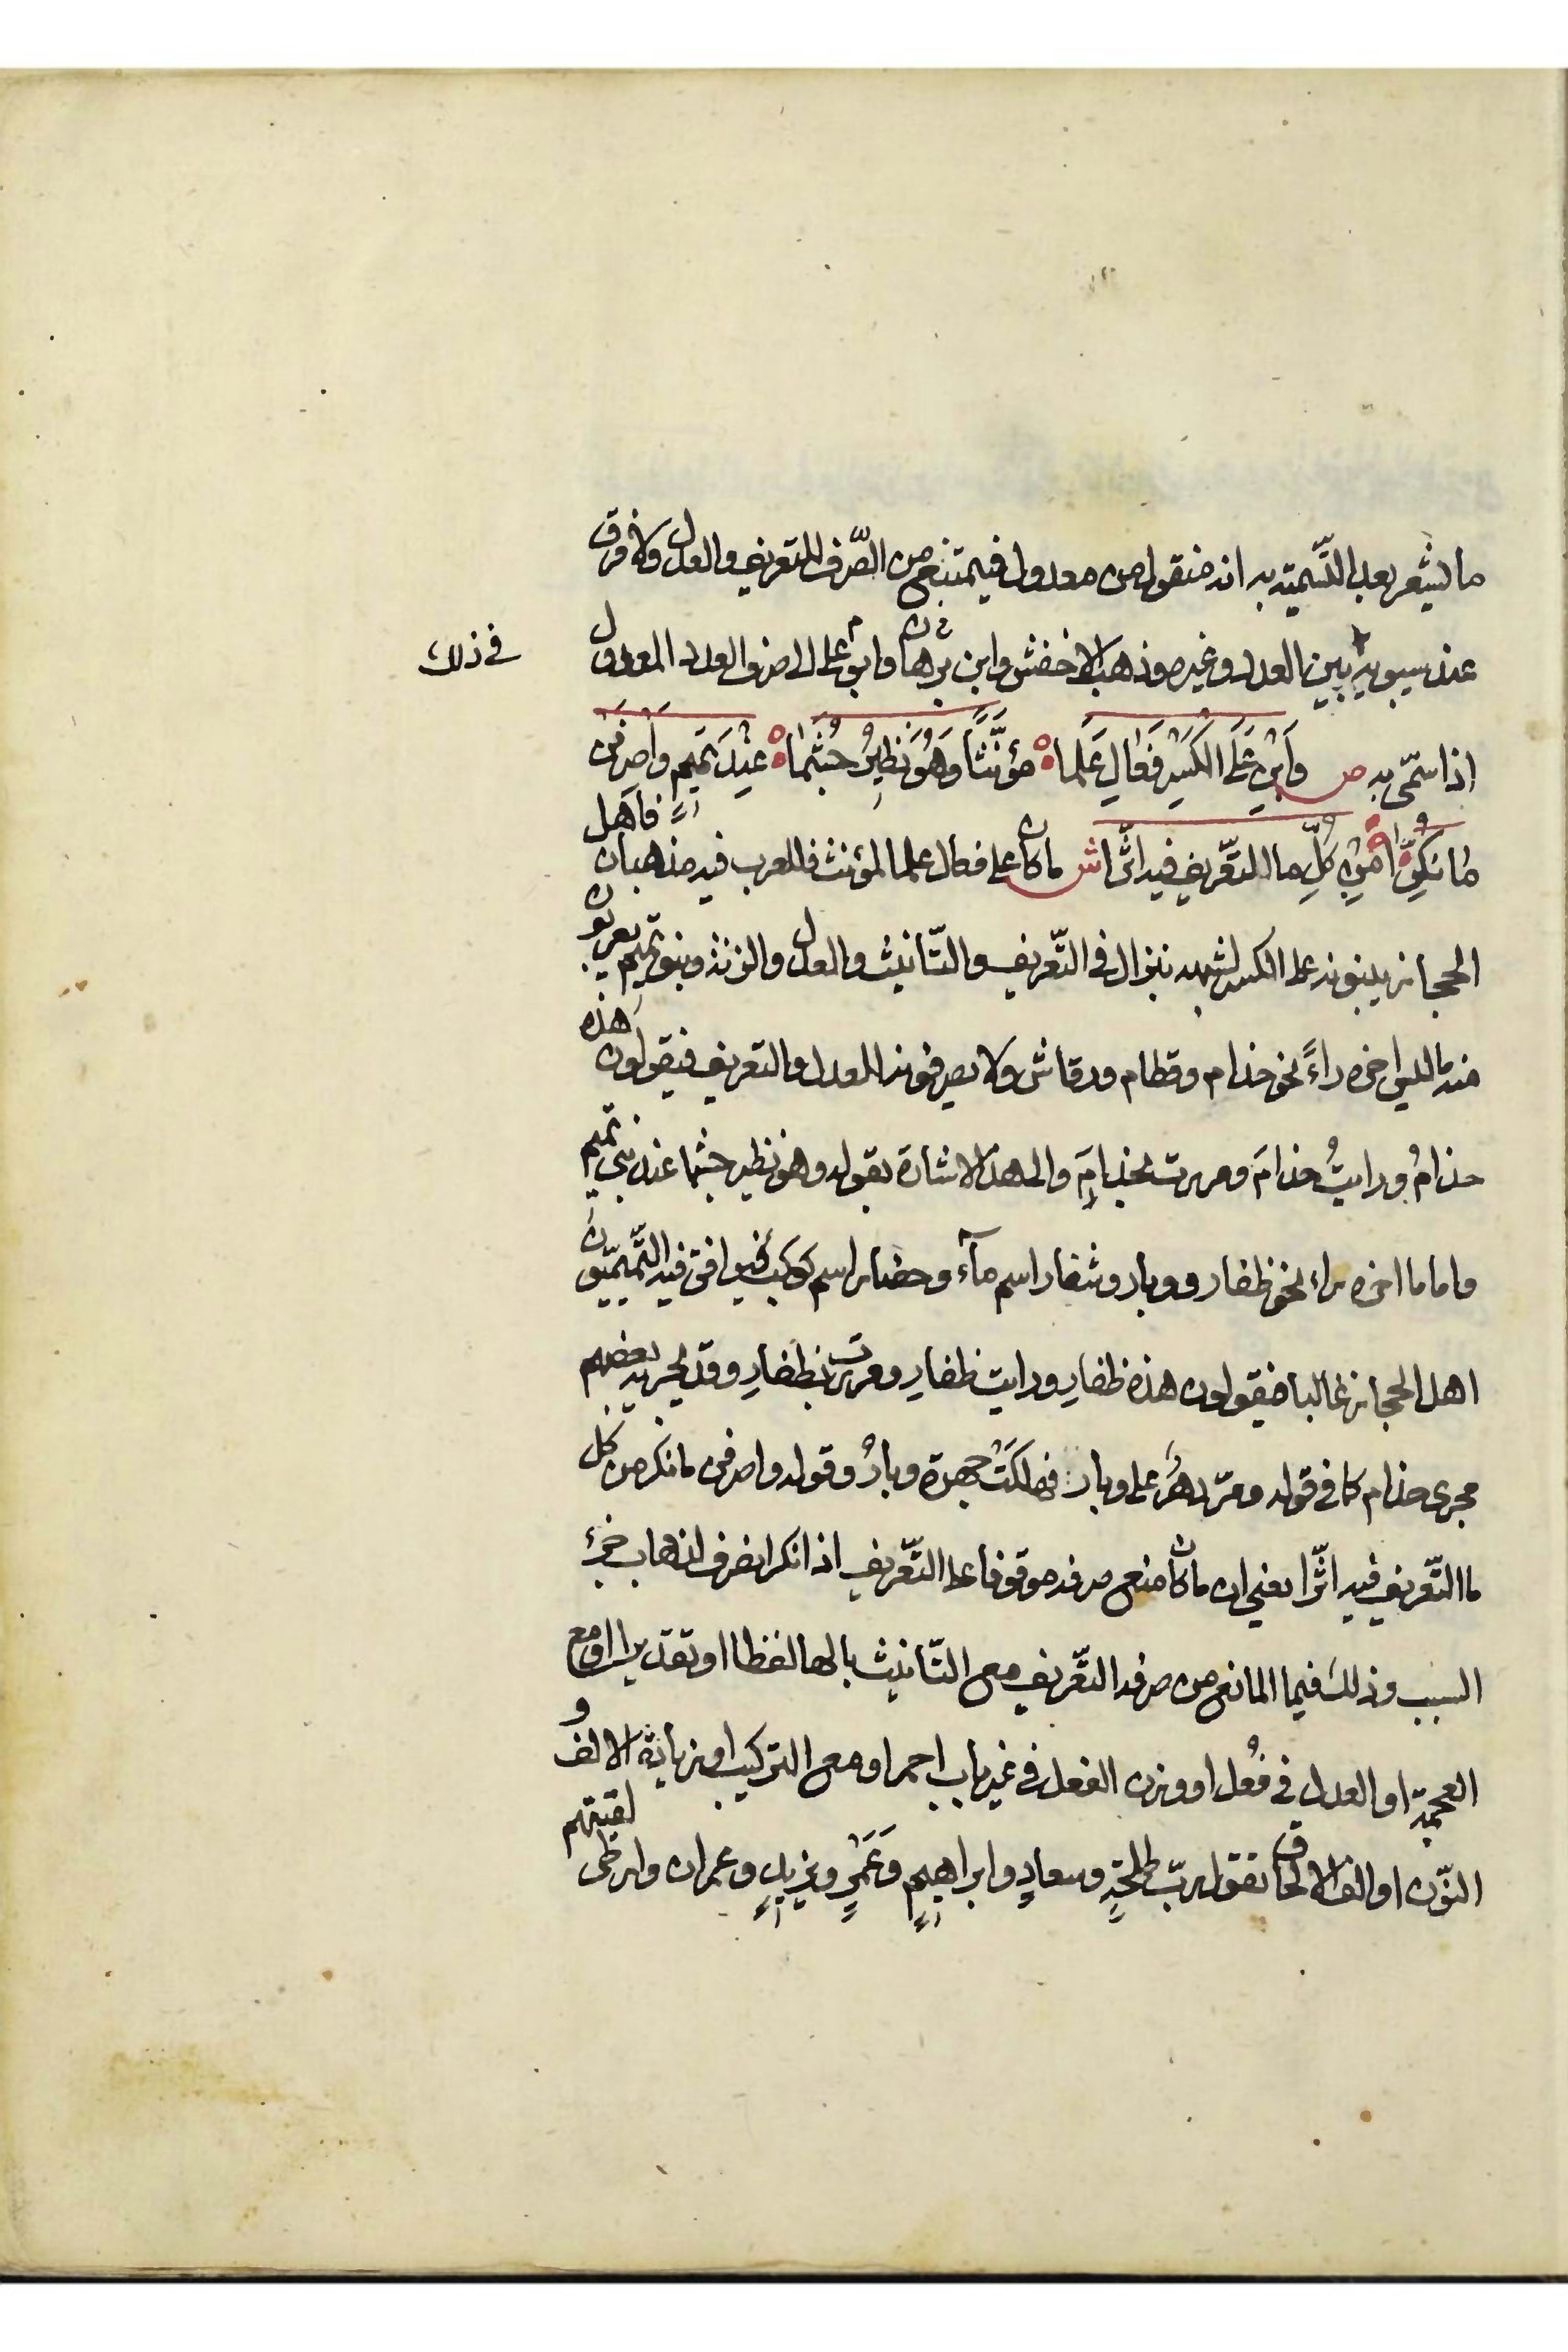 ما يشعر بعد التّسمية به انه منقول من معدول فيمتنع من الصّرف للتعريف والعدل ولا فرق
عند سيبويه بين العدد وغيره وذهب الاخفش وابن برهان وابو علي الى صرف العدد المعدول
في ذلك
اذا سمّي به ص وَابْنِ عَلَى الكَسْرِ فَعَالِ عَلَما مؤنَّثًا وَهُوَ نَظِيرُ جُشَمَا عِنْدَ تَمِيمٍ وَاصْرِفَنْ
مَا نُكِّرَا مِنْ كُلِّ ما التّعريف فيه اثّرا ش ما كان على فعال علما لمؤنث فللعرب فيه مذهبان فاهل
الحجاز يبنونه على الكسر لشبهه بنزال في التّعريف والتّانيث والعدل والزنة وبنو تميم يعربون
منه ما ليس اخره راءً نحو حذام وقطام ورقاش ولا يصرفونه للعدل والتعريف فيقولون هذه
حذامُ ورايتُ حذامَ ومررت بحذامَ والى هذا الاشارة بقوله وهو نظير جشما عند بني تميم
واما ما اخره راء نحو ظفار ووبار وشفار اسم مآء وحضار اسم كوكب فيوافق فيه التّميميّون
اهل الحجاز غالبا فيقولون هذه ظفارِ ورايت ظفارِ ومررت بظفارِ وقد يجريه بعضهم
مجرى حذام كما في قوله ومرّ دهرٌ على وبار فهلكَتْ جهرة وبارُ وقوله واصرفن ما نكر من كل
ما التّعريف فيه اثّرا يعني ان ما كان منع صرفه موقوفا على التّعريف اذا نكر انصرف لذهاب جزء
السبب وذلك فيما المانع من صرفه التّعريف مع التّانيث بالها لفظا او تقديرا او مع
العجمة او العدل في فُعل او وزن الفعل في غير باب احمر او مع التركيب او زيادة الالف و
النّون او الف الالحاق تقول ربّ طلحةٍ وسعادٍ وابراهيمٍ وَعُمَرٍ ويزيدٍ وعمران وارطى لقيتهم